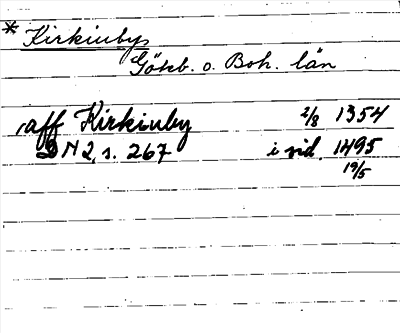 * Kirkiuby,
Göteb. o. Boh. län
,aff Kirkiuby 2/8 1354
DN 2, s. 267 i vid. 1495
19/5